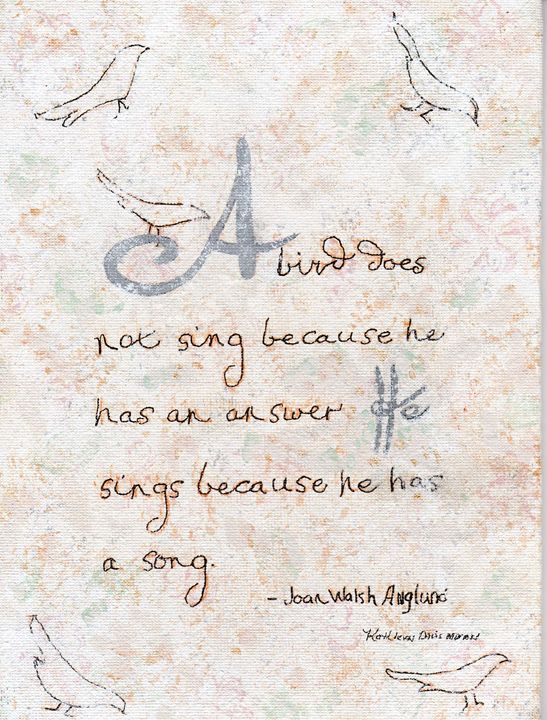 A bird does
not sing because he
has an answer He
sings because he has
a song.
- Joan Walsh Anglund